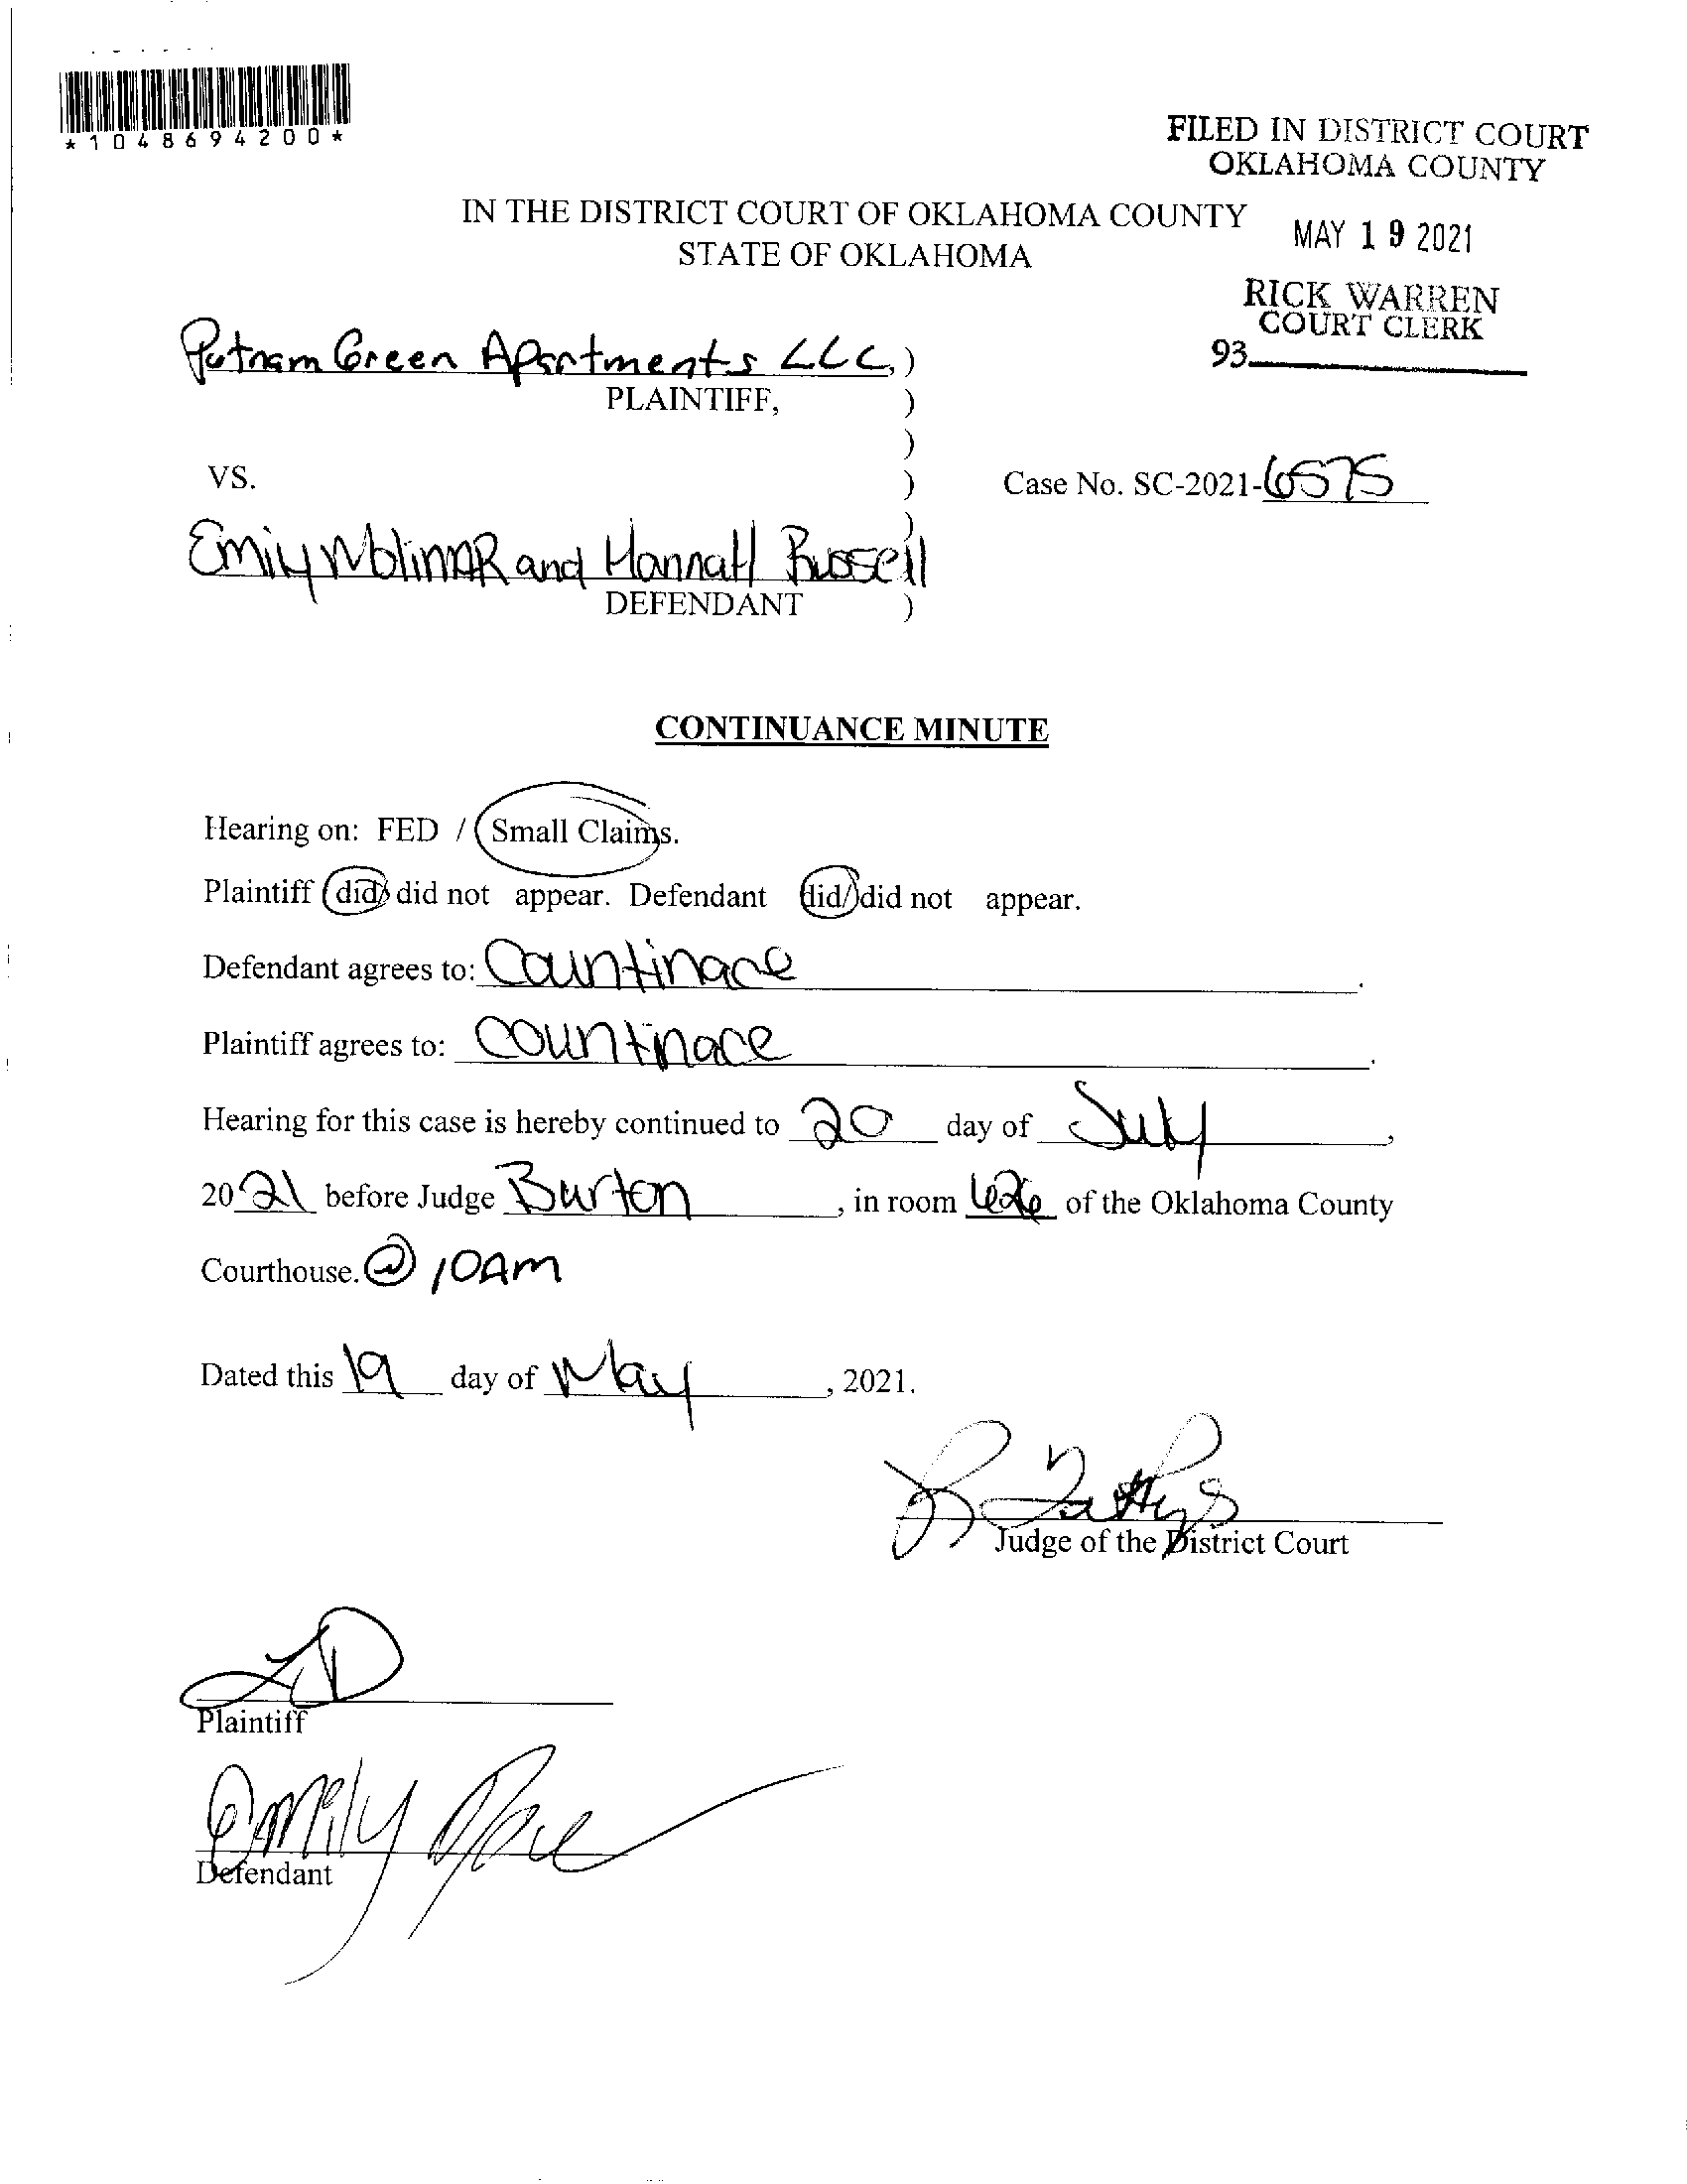 *1048694200*
FILED IN DISTRICT COURT
OKLAHOMA COUNTY
MAY 19 2021
RICK WARREN
COURT CLERK
93
IN THE DISTRICT COURT OF OKLAHOMA COUNTY
STATE OF OKLAHOMA
Putnam Green Apartments LLC, )
PLAINTIFF, )
)
VS. )
Case No. SC-2021-6575
)
Emily Molinar and Hannah Russell
DEFENDANT )
CONTINUANCE MINUTE
Hearing on: FED / Small Claims.
Plaintiff did/ did not appear. Defendant did/ did not appear.
Defendant agrees to: Countinace.
Plaintiff agrees to: Countinace.
Hearing for this case is hereby continued to 20 day of July,
2021 before Judge Burton, in room 626 of the Oklahoma County
Courthouse. @ 10AM
Dated this 19 day of May, 2021.
Judge of the District Court
Plaintiff
Emily
Defendant